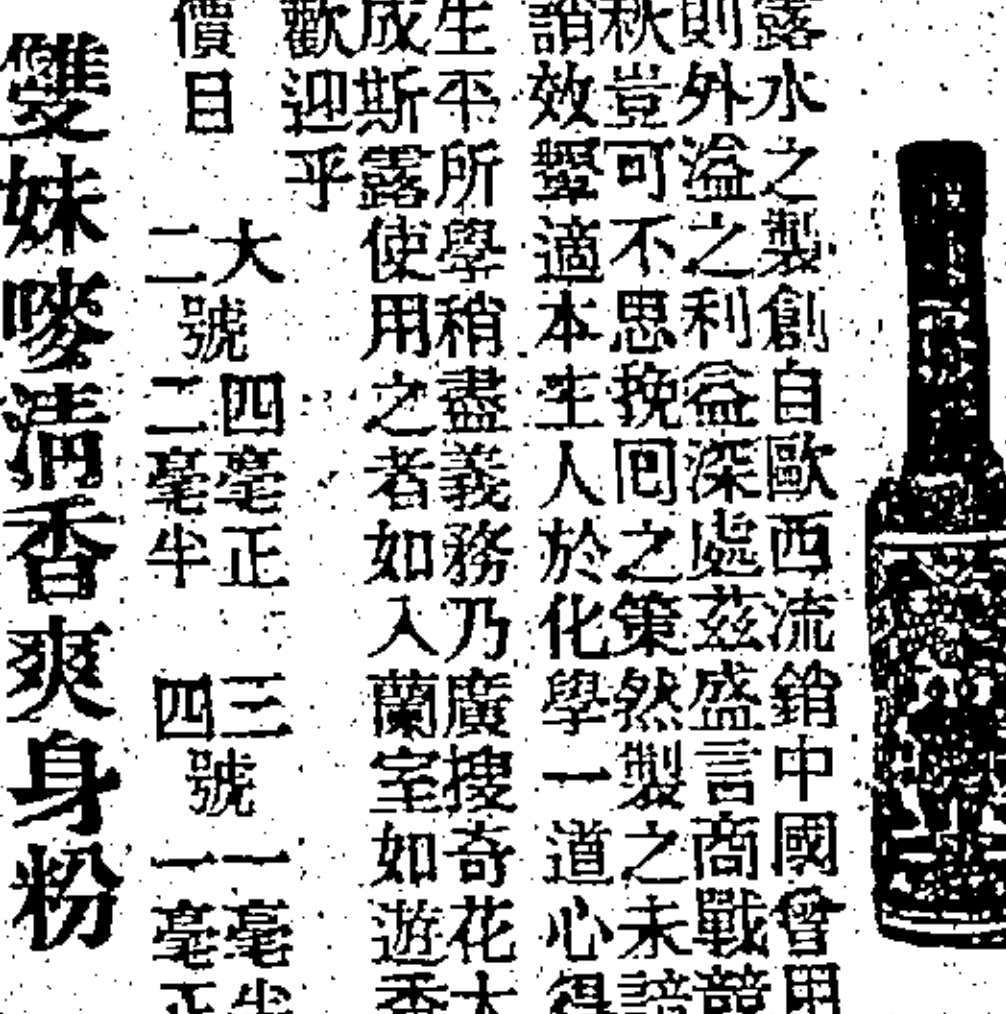 露水之製創自歐西流銷中國曾用
則外溢之利益深處茲盛言商戰競
秋豈可不思挽囘之策然製之未諳
誚效颦適本生人於化學一道心得
生平所學稍盡義務乃廣搜奇花大
成斯露使用之者如入蘭室如遊香
歡迎乎
價目
大號四毫正
二號二毫半
三號一毫半
四號一毫正
雙妹嘜清香爽身粉